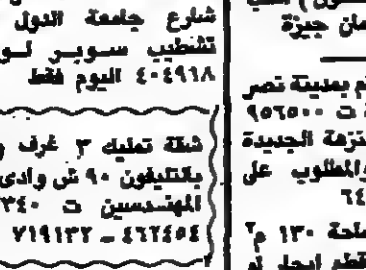 شارع جامعة الدول
تشطيب سوبر لو
٤٠٤٩١٨ اليوم فقط
شقة تمليك ٣ غرف و
بالتليفون ٩٠ ش وادى
المهندسين ت ٣٤٠
٤٦٢٤٥٤ ـ ٧١٩١٣٢
مان جيزة
م بمدينة نصر
ة ت ٩٥٦٥٠٠
نزهة الجديدة
والمطلوب على
٦٤
احة ١٣٠ م٢